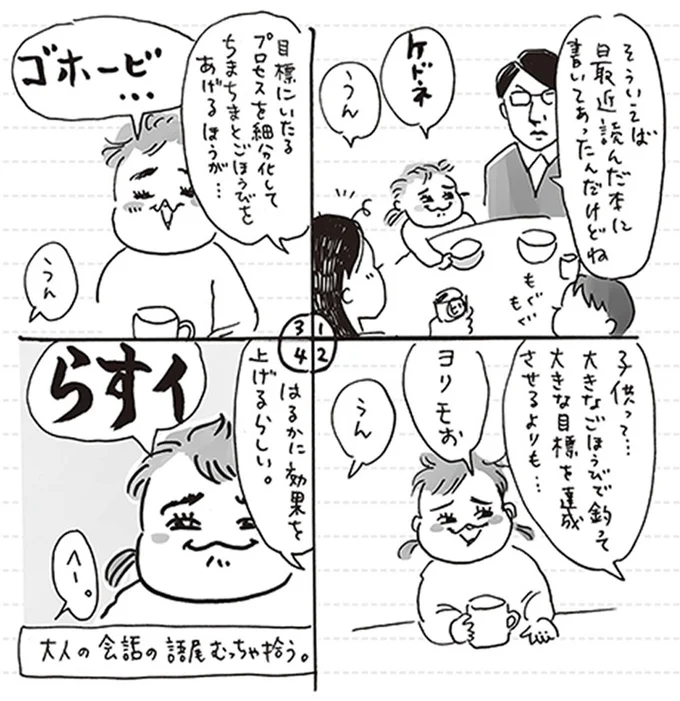 そういえば
最近読んだ本に
書いてあったんだけどね
ケドネ
うん
もぐ
もぐ
1
子供って…
大きなごほうびで釣って
大きな目標を達成
させるよりも…
ヨリモぉ
うん
2
目標にいたる
プロセスを細分化して
ちまちまとごほうびを
あげるほうが…
ゴホービ…
うん
3
はるかに効果を
上げるらしい。
らすイ
へー。
4
大人の会話の語尾むっちゃ拾う。